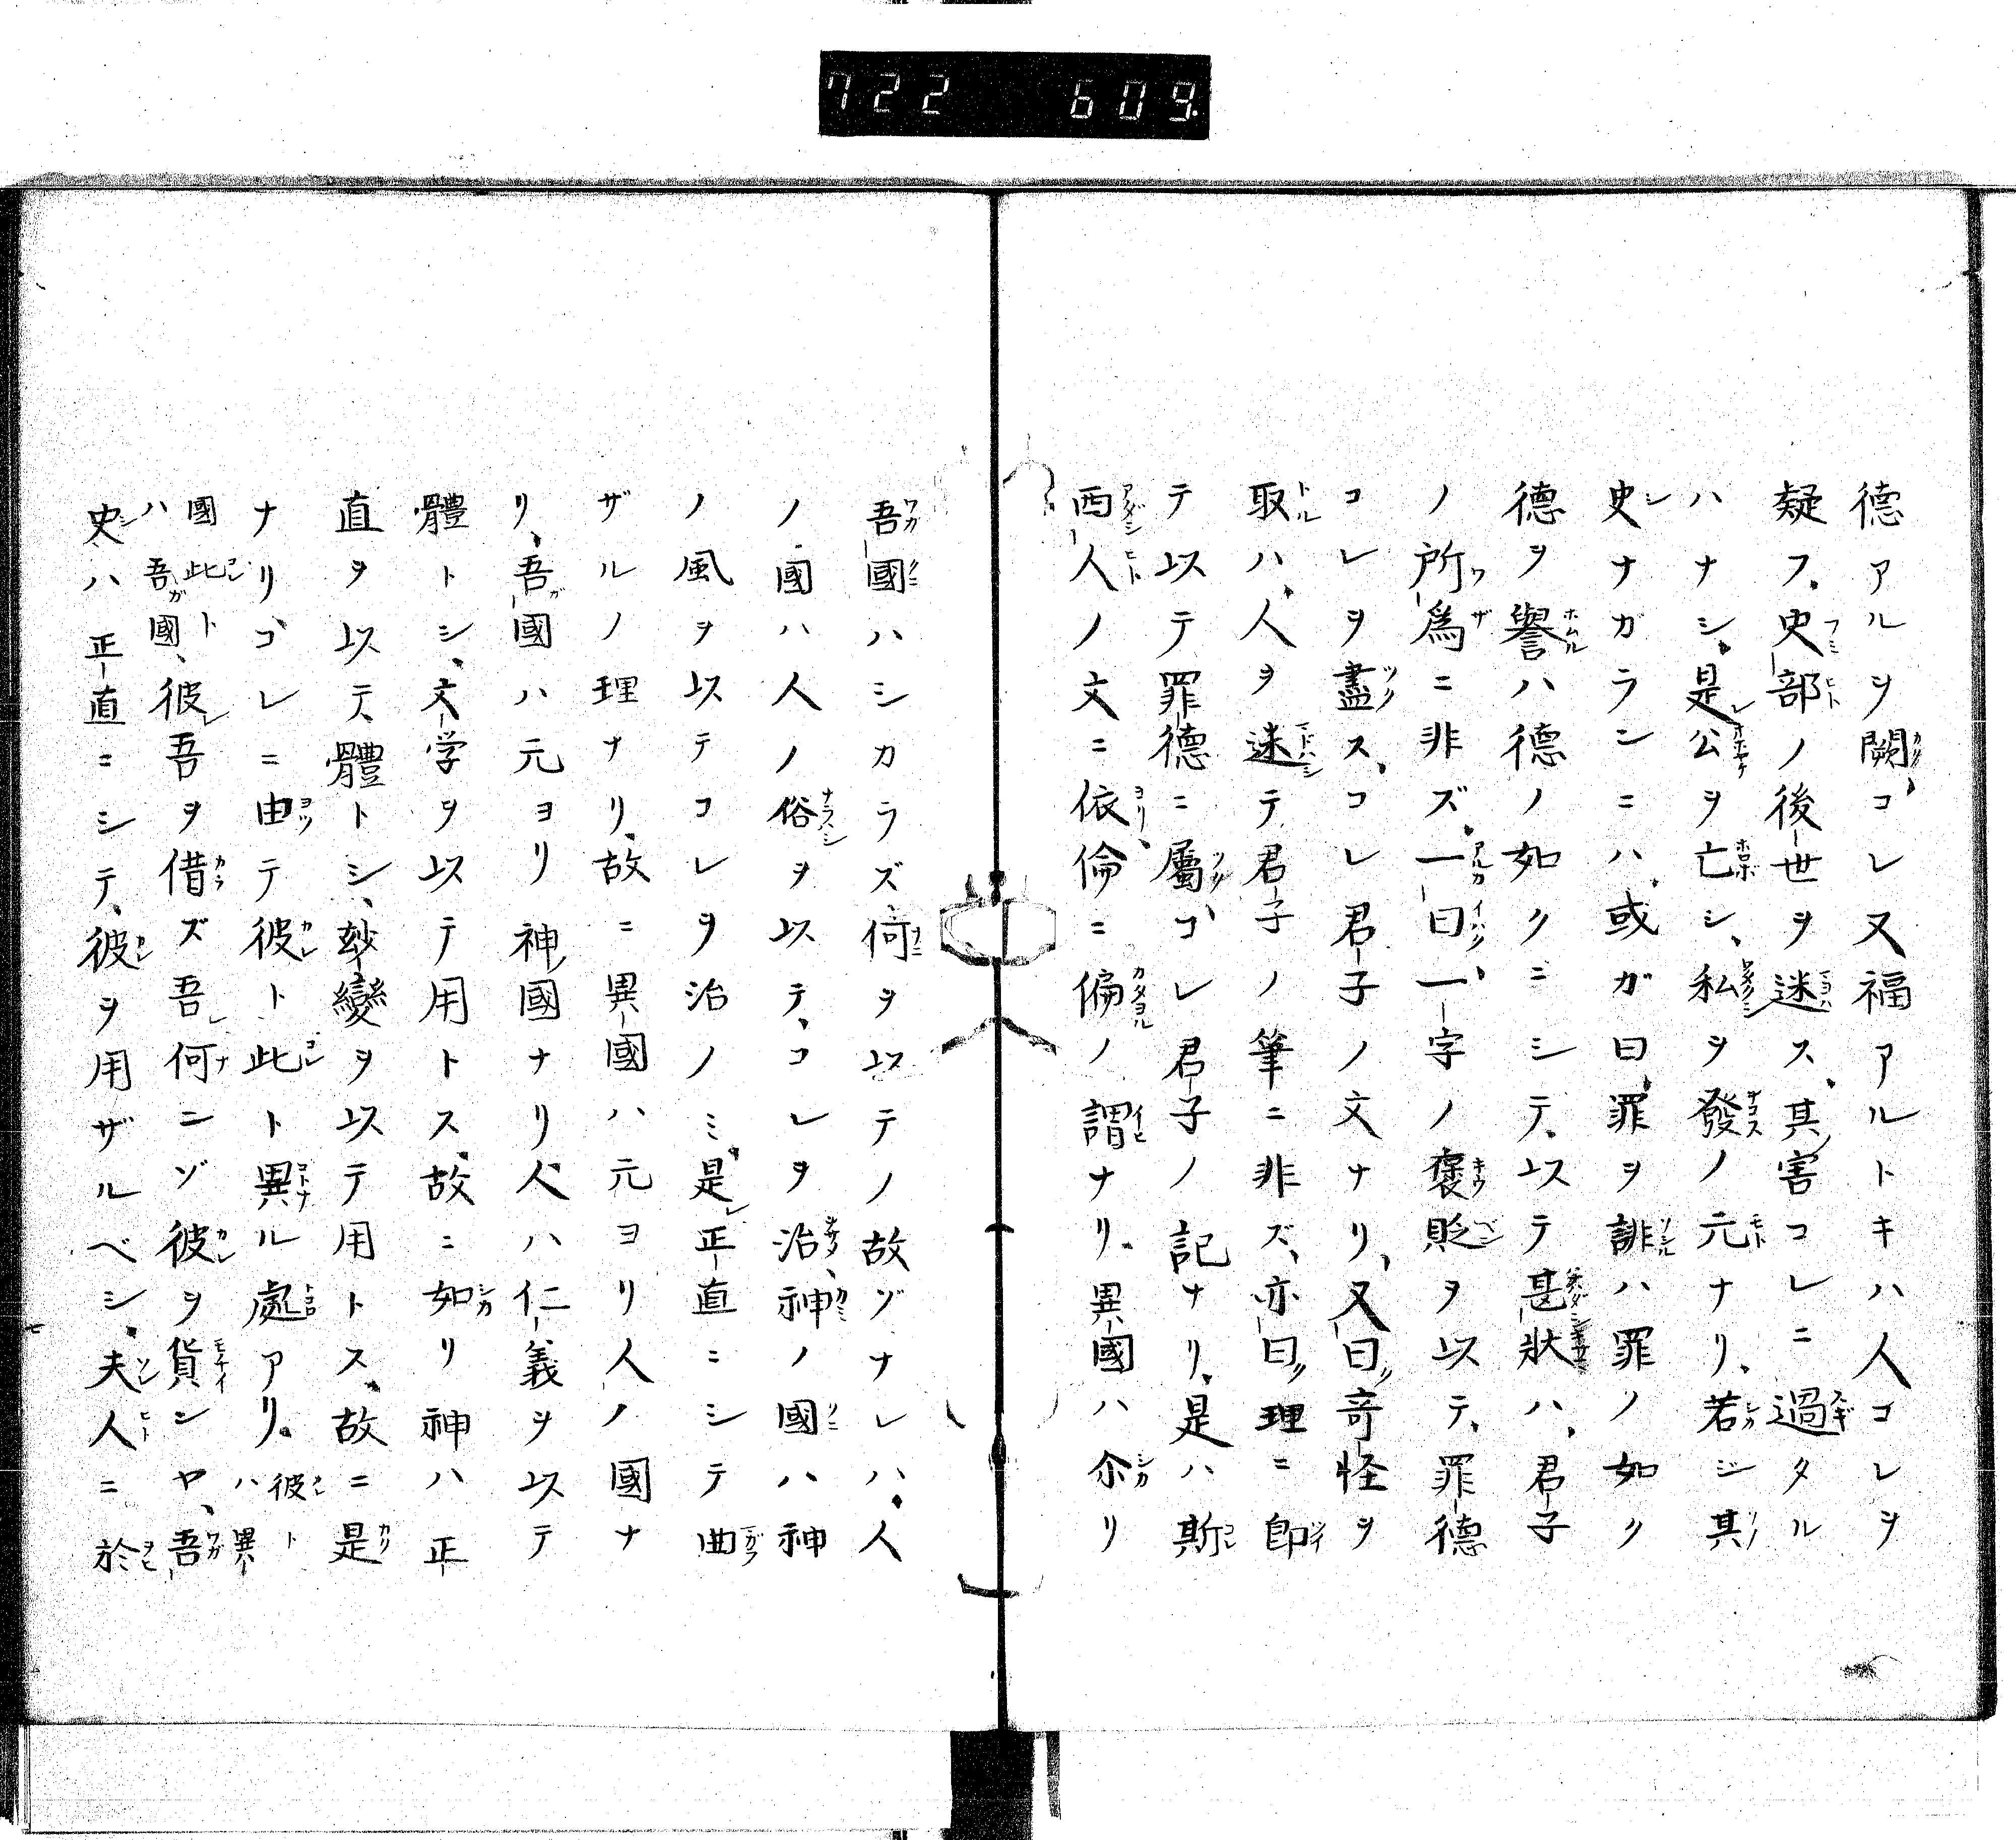 722 609.
德アルヲ闕コレ又福アルトキハ人コレヲ
疑フ、史部ノ後世ヲ迷ス、其害コレニ過タル
ハナシ、是公ヲ亡シ、私ヲ發ノ元ナリ、若ジ其
史ナガラシニハ、或ガ曰、罪ヲ誹ハ罪ノ如ク
德ヲ譽ハ德ノ如クニシテ、以テ甚狀ハ、君子
ノ所爲ニ非ズ、一曰、一字ノ褒貶ヲ以テ、罪德
コレヲ盡ス、コレ君子ノ文ナリ、又曰、奇怪ヲ
取ハ、人ヲ迷テ君子ノ筆ニ非ズ、亦曰、理ニ即
テ以テ罪德ニ屬、コレ君子ノ記ナリ、是ハ斯
西人ノ文ニ依、倫ニ偏ノ謂ナリ。異國ハ尒リ
吾國ハシカラズ、何ヲ以テノ故ゾナレハ、人
ノ國ハ人ノ俗ヲ以テ、コレヲ治、神ノ國ハ神
ノ風ヲ以テコレヲ治ノミ、是正直ニシテ曲
ザルノ理ナリ、故ニ異國ハ元ヨリ人ノ國ナ
リ、吾國ハ元ヨリ神國ナリ、人ハ仁義ヲ以テ
體トシ、文学ヲ以テ用トス、故ニ如リ神ハ正
直ヲ以テ、體トシ、玅變ヲ以テ用トス、故ニ是
ナリ、コレニ由テ彼ト此ト異ル處アリ。彼トハ異
國此トハ吾國、彼吾ヲ借ズ吾何ニゾ彼ヲ貸シヤ、吾
史ハ正直ニシテ、彼ヲ用ザルベシ、夫人ニ於